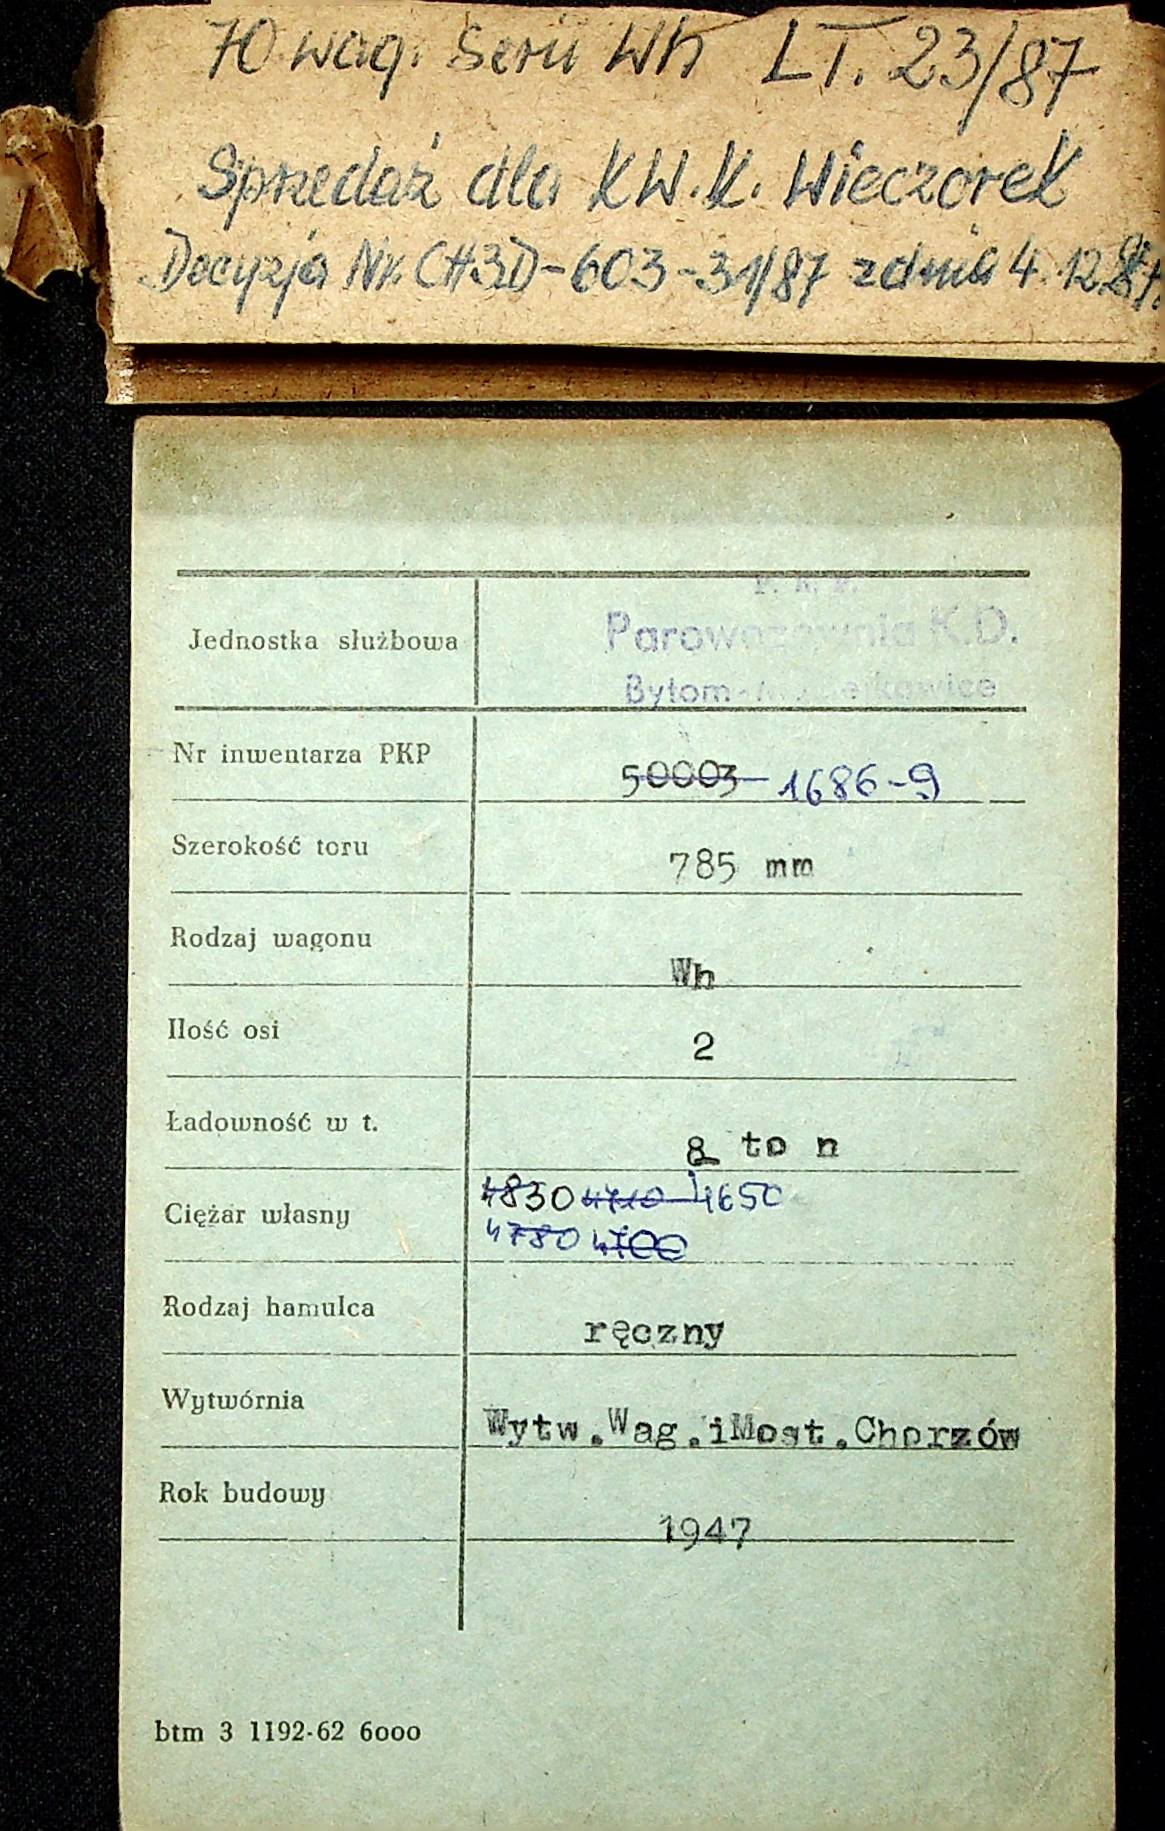 70 wag. Serii Wh LT. 23/87
Sprzedaż dla KW.K. Wieczorek
Decyzja Nr. CH3D-603-31/87 z dnia 4.12.87r.
P. K. P.
Jednostka służbowa Parowozownia K.D.
Bytom-Maciejkowice
Nr inwentarza PKP 50003 1686-9
Szerokość toru 785 mm
Rodzaj wagonu Wh
Ilość osi 2
Ładowność w t. 8 to n
4830 4710 4650
Ciężar własny
4780 4700
Rodzaj hamulca ręczny
Wytwórnia Wytw.Wag.iMost.Chorzów
Rok budowy 1947
btm 3 1192-62 6ooo